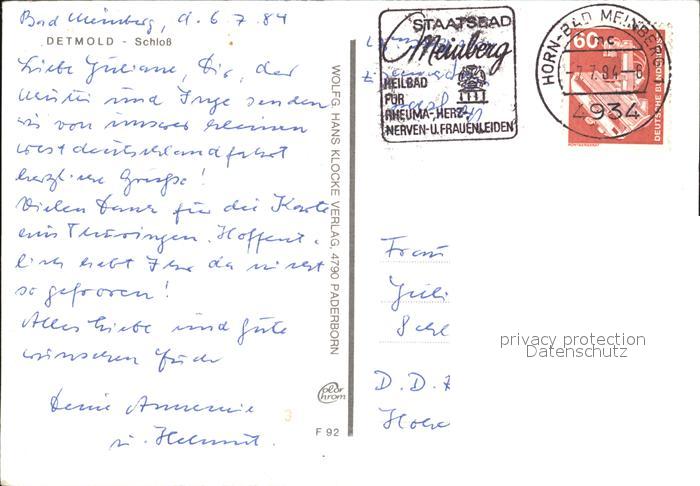 Bad Meinberg, d. 6. 7. 84
DETMOLD - Schloß
Liebe Juliane, Dir, der
Mutti und Inge senden
wir von unserer kleinen
Westdeutschlandfahrt
herzliche Grüße!
Vielen Dank für die Karte
aus Thüringen. Hoffent-
lich habt Ihr da nicht
so gefroren!
Alles Liebe und Gute
wünschen für
Deine Annemie
u. Helmut.
WOLFG. HANS KLOCKE VERLAG, 4790 PADERBORN
color
chrom
F 92
3
STAATSBAD
Meinberg
HEILBAD
FÜR
RHEUMA-, HERZ-,
NERVEN- U. FRAUENLEIDEN
HORN-BAD MEINBERG
mc
-7.7.84-8
4934
60
DEUTSCHE BUNDES
RÖNTGENGERÄT
Frau
Juli
D.D.R
privacy protection
Datenschutz